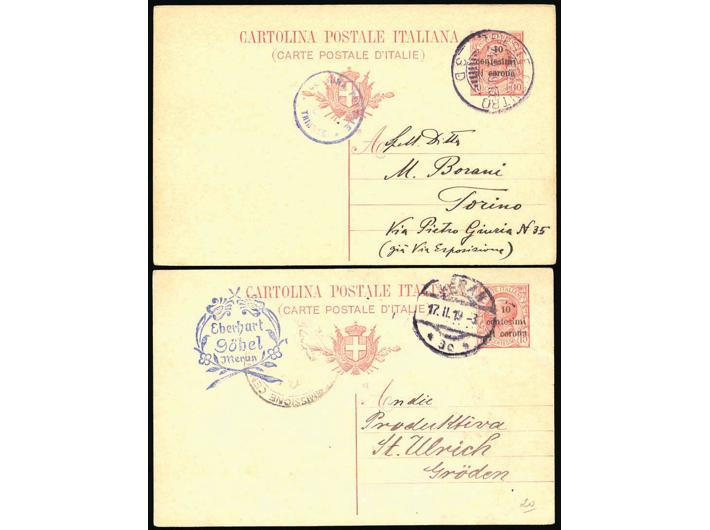 CARTOLINA POSTALE ITALIANA
(CARTE POSTALE D'ITALIE)
TRIESTE CENTRO
3 D
10
centesimi
di corona
A
Spett. Ditta
M. Borani
Torino
Via Pietro Giuria N 35
(già Via Esposizione)
CARTOLINA POSTALE ITALIANA
(CARTE POSTALE D'ITALIE)
Eberhart
Göbel
Meran
MERAN
17.II.19-8
* 3c *
10
centesimi
di corona
An die
Produktiva
St. Ulrich
Gröden
20